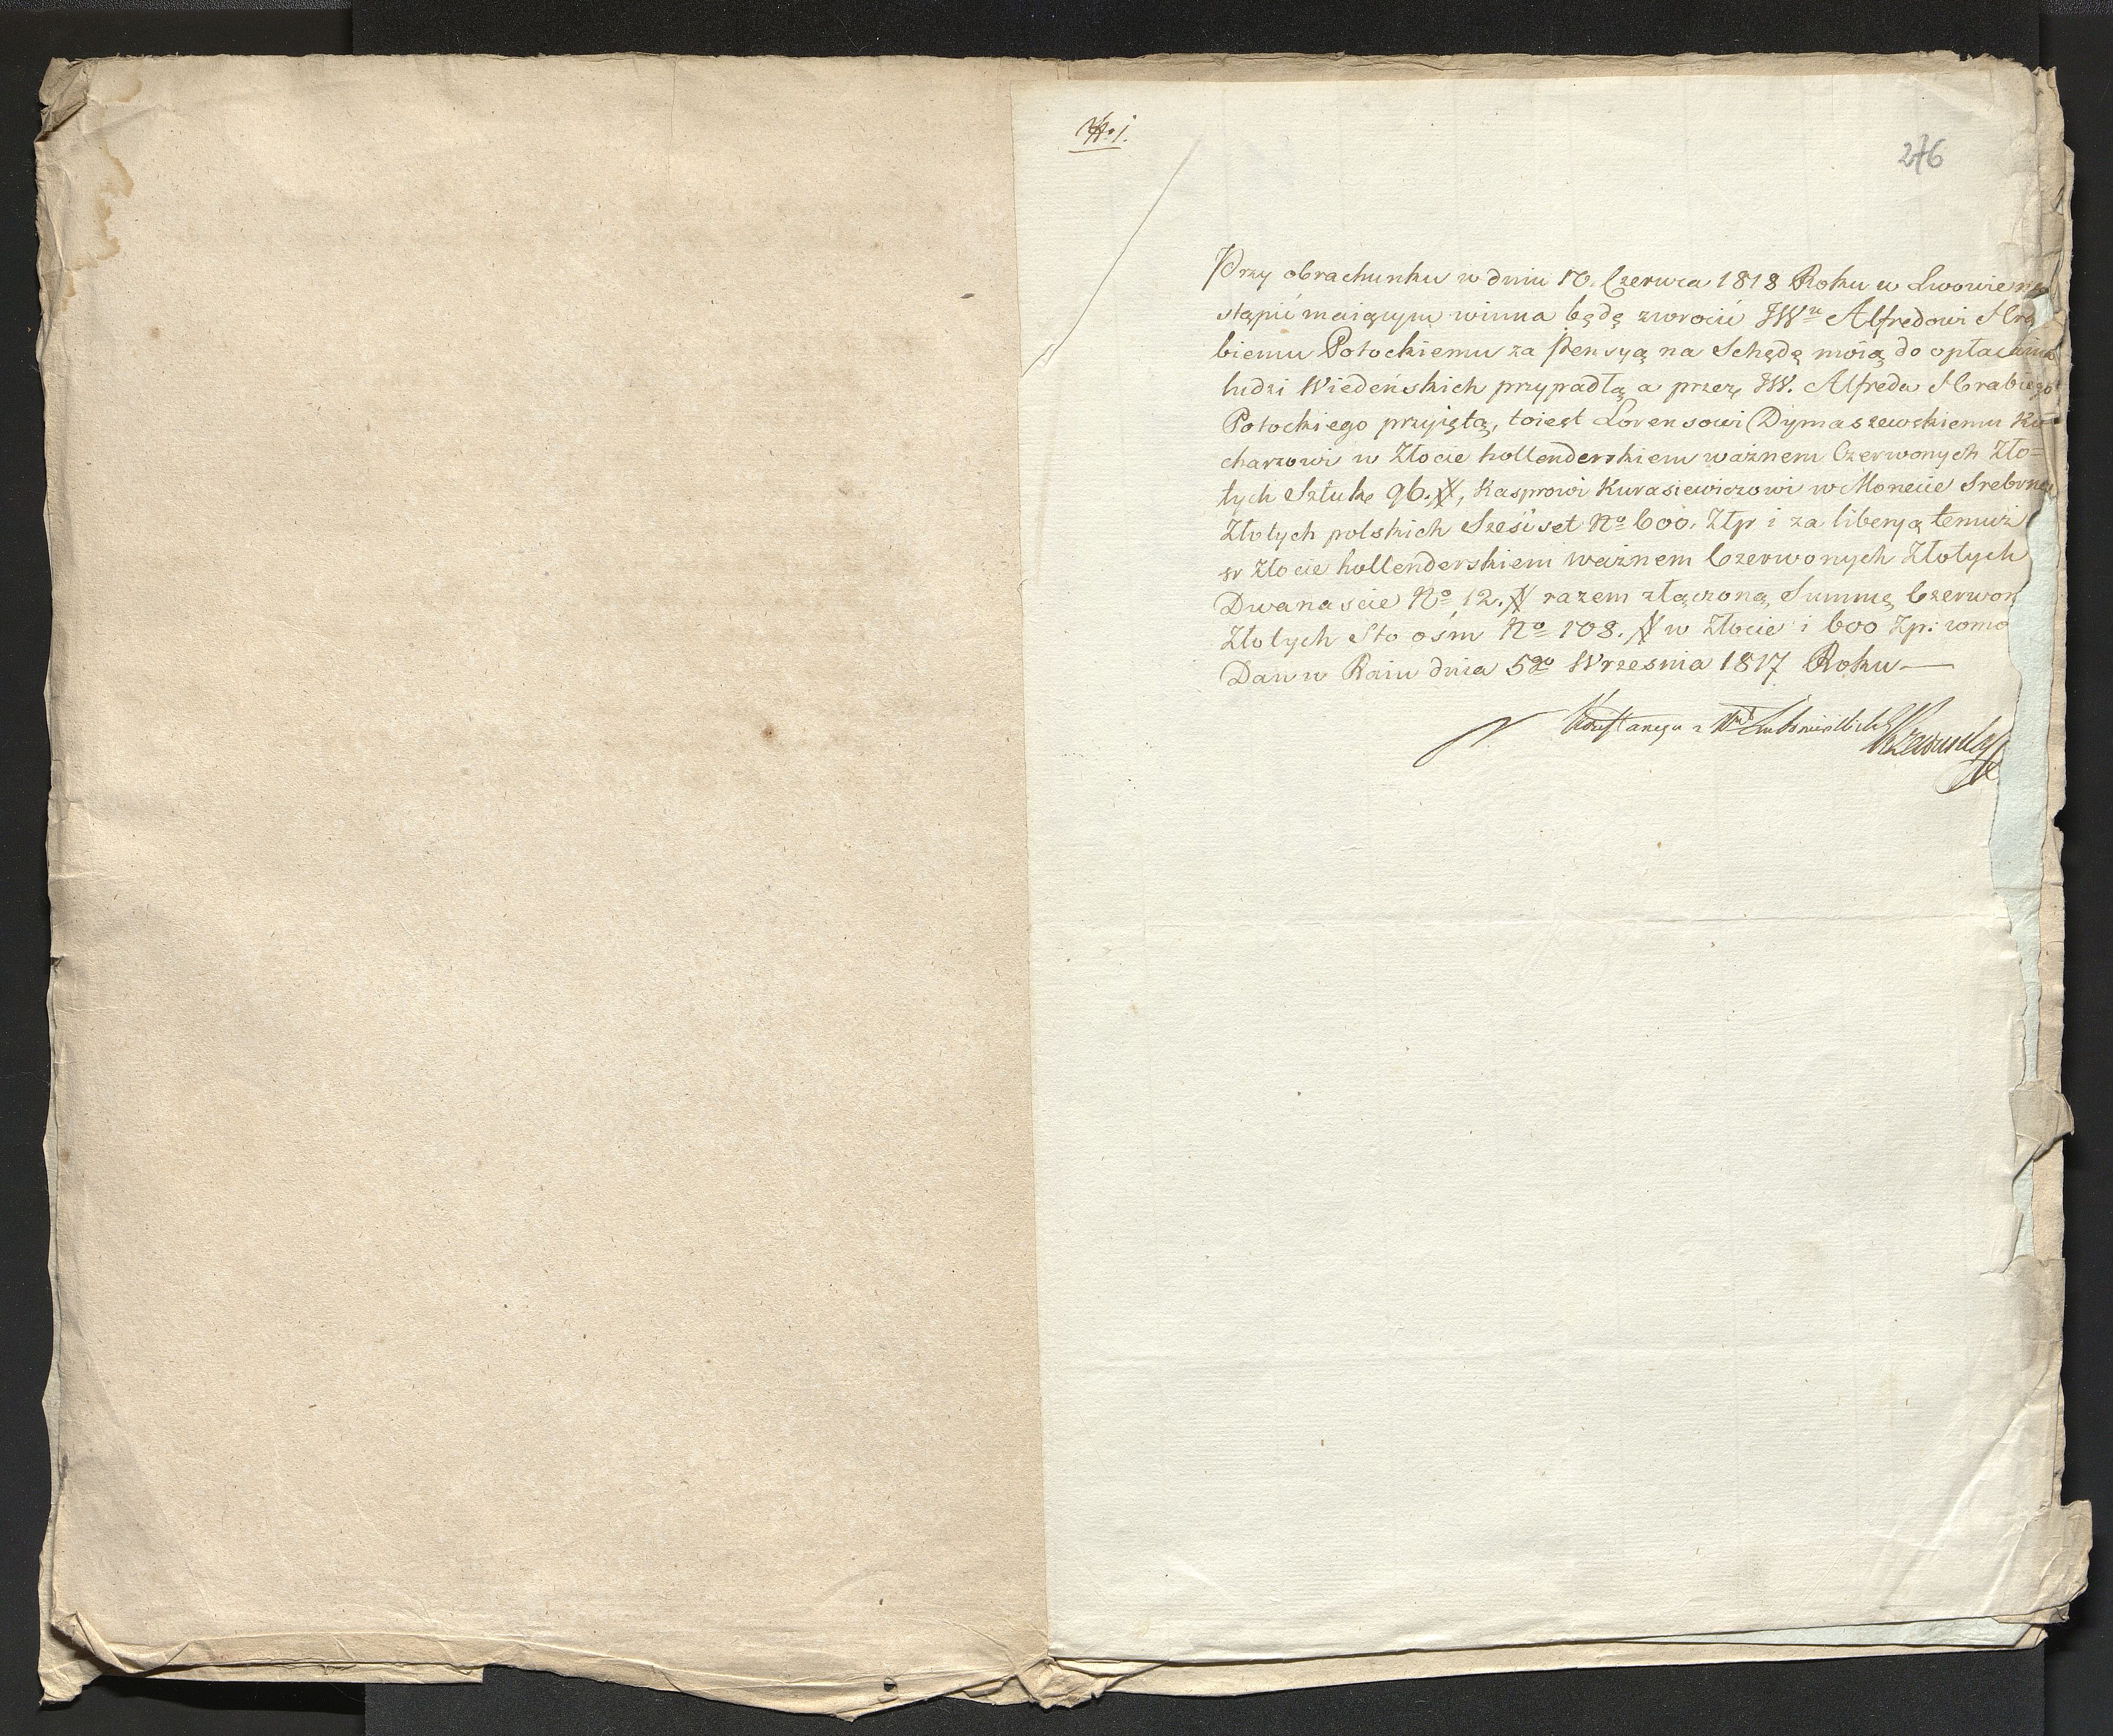 № 1.
276
Przy obrachunku w dniu 10. Czerwca 1818 Roku w Lwowie na
stąpić maiącym winna będę zwrocić JWu Alfredowi Hra
biemu Potockiemu za Pensyą na Schędę moią do opłacania
ludzi Wiedeńskich przypadłą a przez JW. Alfreda Hrabiego
Potockiego przyiętą, toiest Lorensowi Dymaszewskiemu Ku=
charzowi w Złocie hollenderskiem ważnem Czerwonych Zło=
tych Sztuk 96. #, Kasprowi Kurasiewiczowi w Monecie Srebrney
Złotych polskich Sześćset No 600. Złp i za liberyą temuż
w Złocie hollenderskiem ważnem Czerwonych Złotych
Dwanascie No 12. # razem złączoną Summę Czerwon
Złotych Sto ośm No 108. # w Złocie i 600 Zp: w mo
Dan w Raiu dnia 5go Wrzesnia 1817 Roku —
Konstancya z